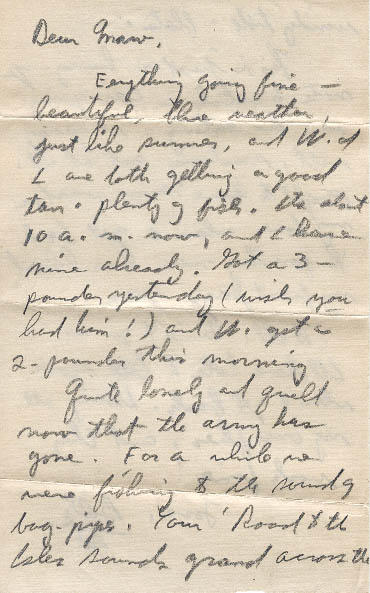 Dear Maw,
Everything going fine —
beautiful, blue weather,
just like summer, and W. and
I are both getting a good
tan & plenty of fish. It's about
10 a. m. now, and I have
nine already. Got a 3 -
pounder yesterday (wish you
had him!) and W. got a
2 - pounder this morning
Quite lonely and quiet
now that the army has
gone. For a while we
were fishing to the sound of
bag-pipes. Your "Road to the
Isles sounds grand across the